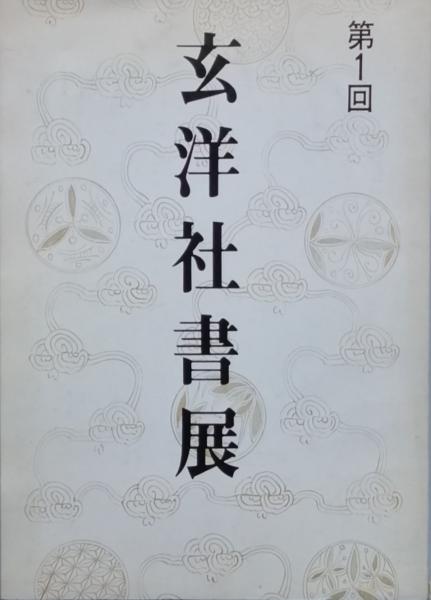 第1回
玄洋社書展